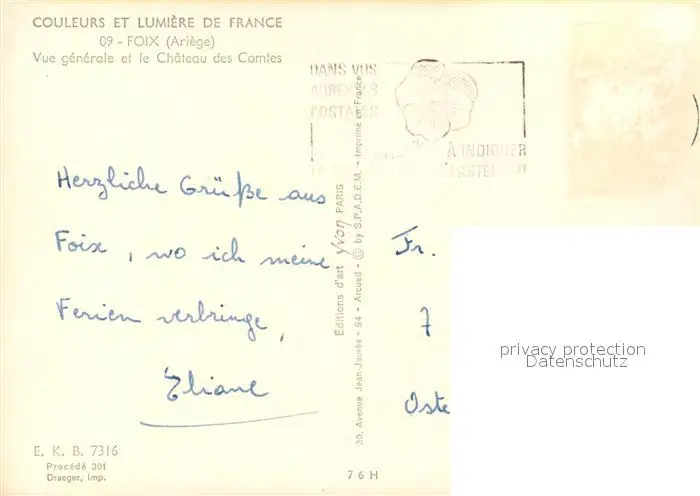 COULEURS ET LUMIÈRE DE FRANCE
09 - FOIX (Ariège)
Vue générale et le Château des Comtes
DANS VOS
ADRESSES
POSTALES
À INDIQUER
Herzliche Grüße aus
Foix, wo ich meine
Ferien verbringe,
Eliane
Editions d'art Yvon PARIS
30, Avenue Jean-Jaurès - 94 - Arcueil - © by S.P.A.D.E.M. - Imprimé en France
Fr.
7
Oste
privacy protection
Datenschutz
E. K. B. 7316
Procédé 301
Draeger, Imp.
76H